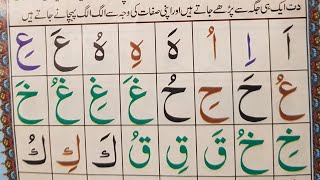 دت ایک ہی جگہ سے پڑھے جاتے ہیں اور اپنی صفات کی وجہ سے الگ الگ پہچانے جاتے ہیں
اَ اِ اُ هَ هِ هُ عَ عِ
عُ حَ حِ حُ غَ غِ غُ خَ
خِ خُ قَ قِ قُ كَ كِ كُ